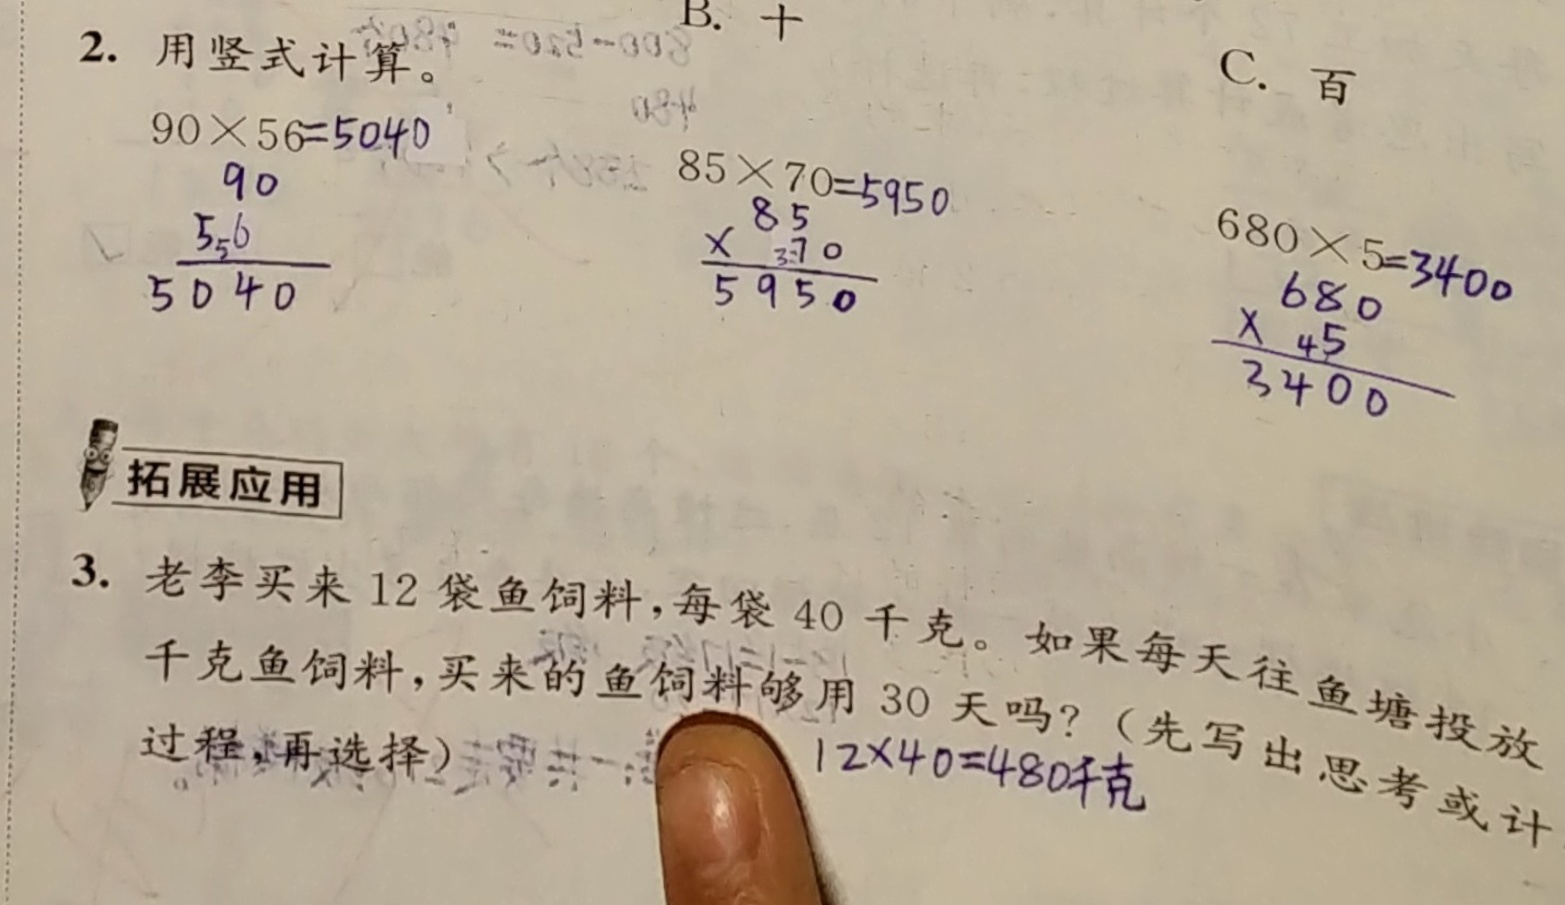 B. 十
C. 百
2. 用竖式计算。
90×56=5040
90
5 5 6
5040
85×70=5950
85
× 3 70
5950
680×5=3400
680
× 4 5
3400
拓展应用
3. 老李买来 12 袋鱼饲料，每袋 40 千克。如果每天往鱼塘投放
千克鱼饲料，买来的鱼饲料够用 30 天吗？（先写出思考或计
过程，再选择）
12×40=480千克